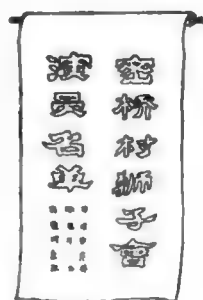 蜜桥村狮子會
演员名单